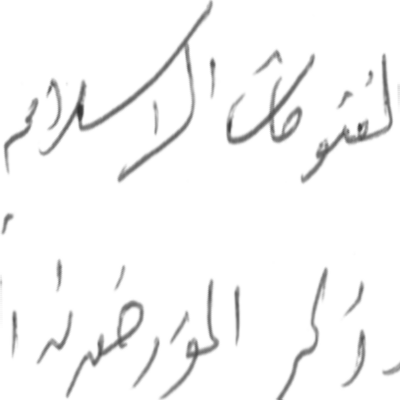 الفتوحات الاسلاميه
ذكر المؤرخون أن